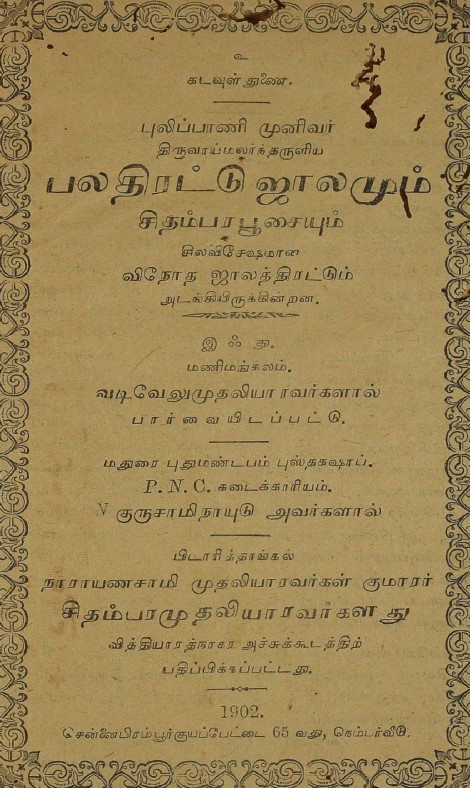 உ
கடவுள் துணை.
புலிப்பாணி முனிவர்
திருவாய்மலர்ந்தருளிய
பலதிரட்டு ஜாலமும்
சிதம்பரபூசையும்
சிலவிசேஷமான
விநோத ஜாலத்திரட்டும்
அடங்கியிருக்கின்றன.
இஃது.
மணிமங்கலம்.
வடிவேலுமுதலியாரவர்களால்
பார்வையிடப்பட்டு.
மதுரை புதுமண்டபம் புஸ்தகஷாப்.
P. N. C. கடைக்காரியம்.
N குருசாமிநாயுடு அவர்களால்
பிடாரித்தாங்கல்
நாராயணசாமி முதலியாரவர்கள் குமாரர்
சிதம்பரமுதலியாரவர்களது
வித்தியாரத்நாகர அச்சுக்கூடத்திற்
பதிப்பிக்கப்பட்டது.
1902.
சென்னைபிரம்பூர்குயப்பேட்டை 65 வது, நெம்டர்வீடு.